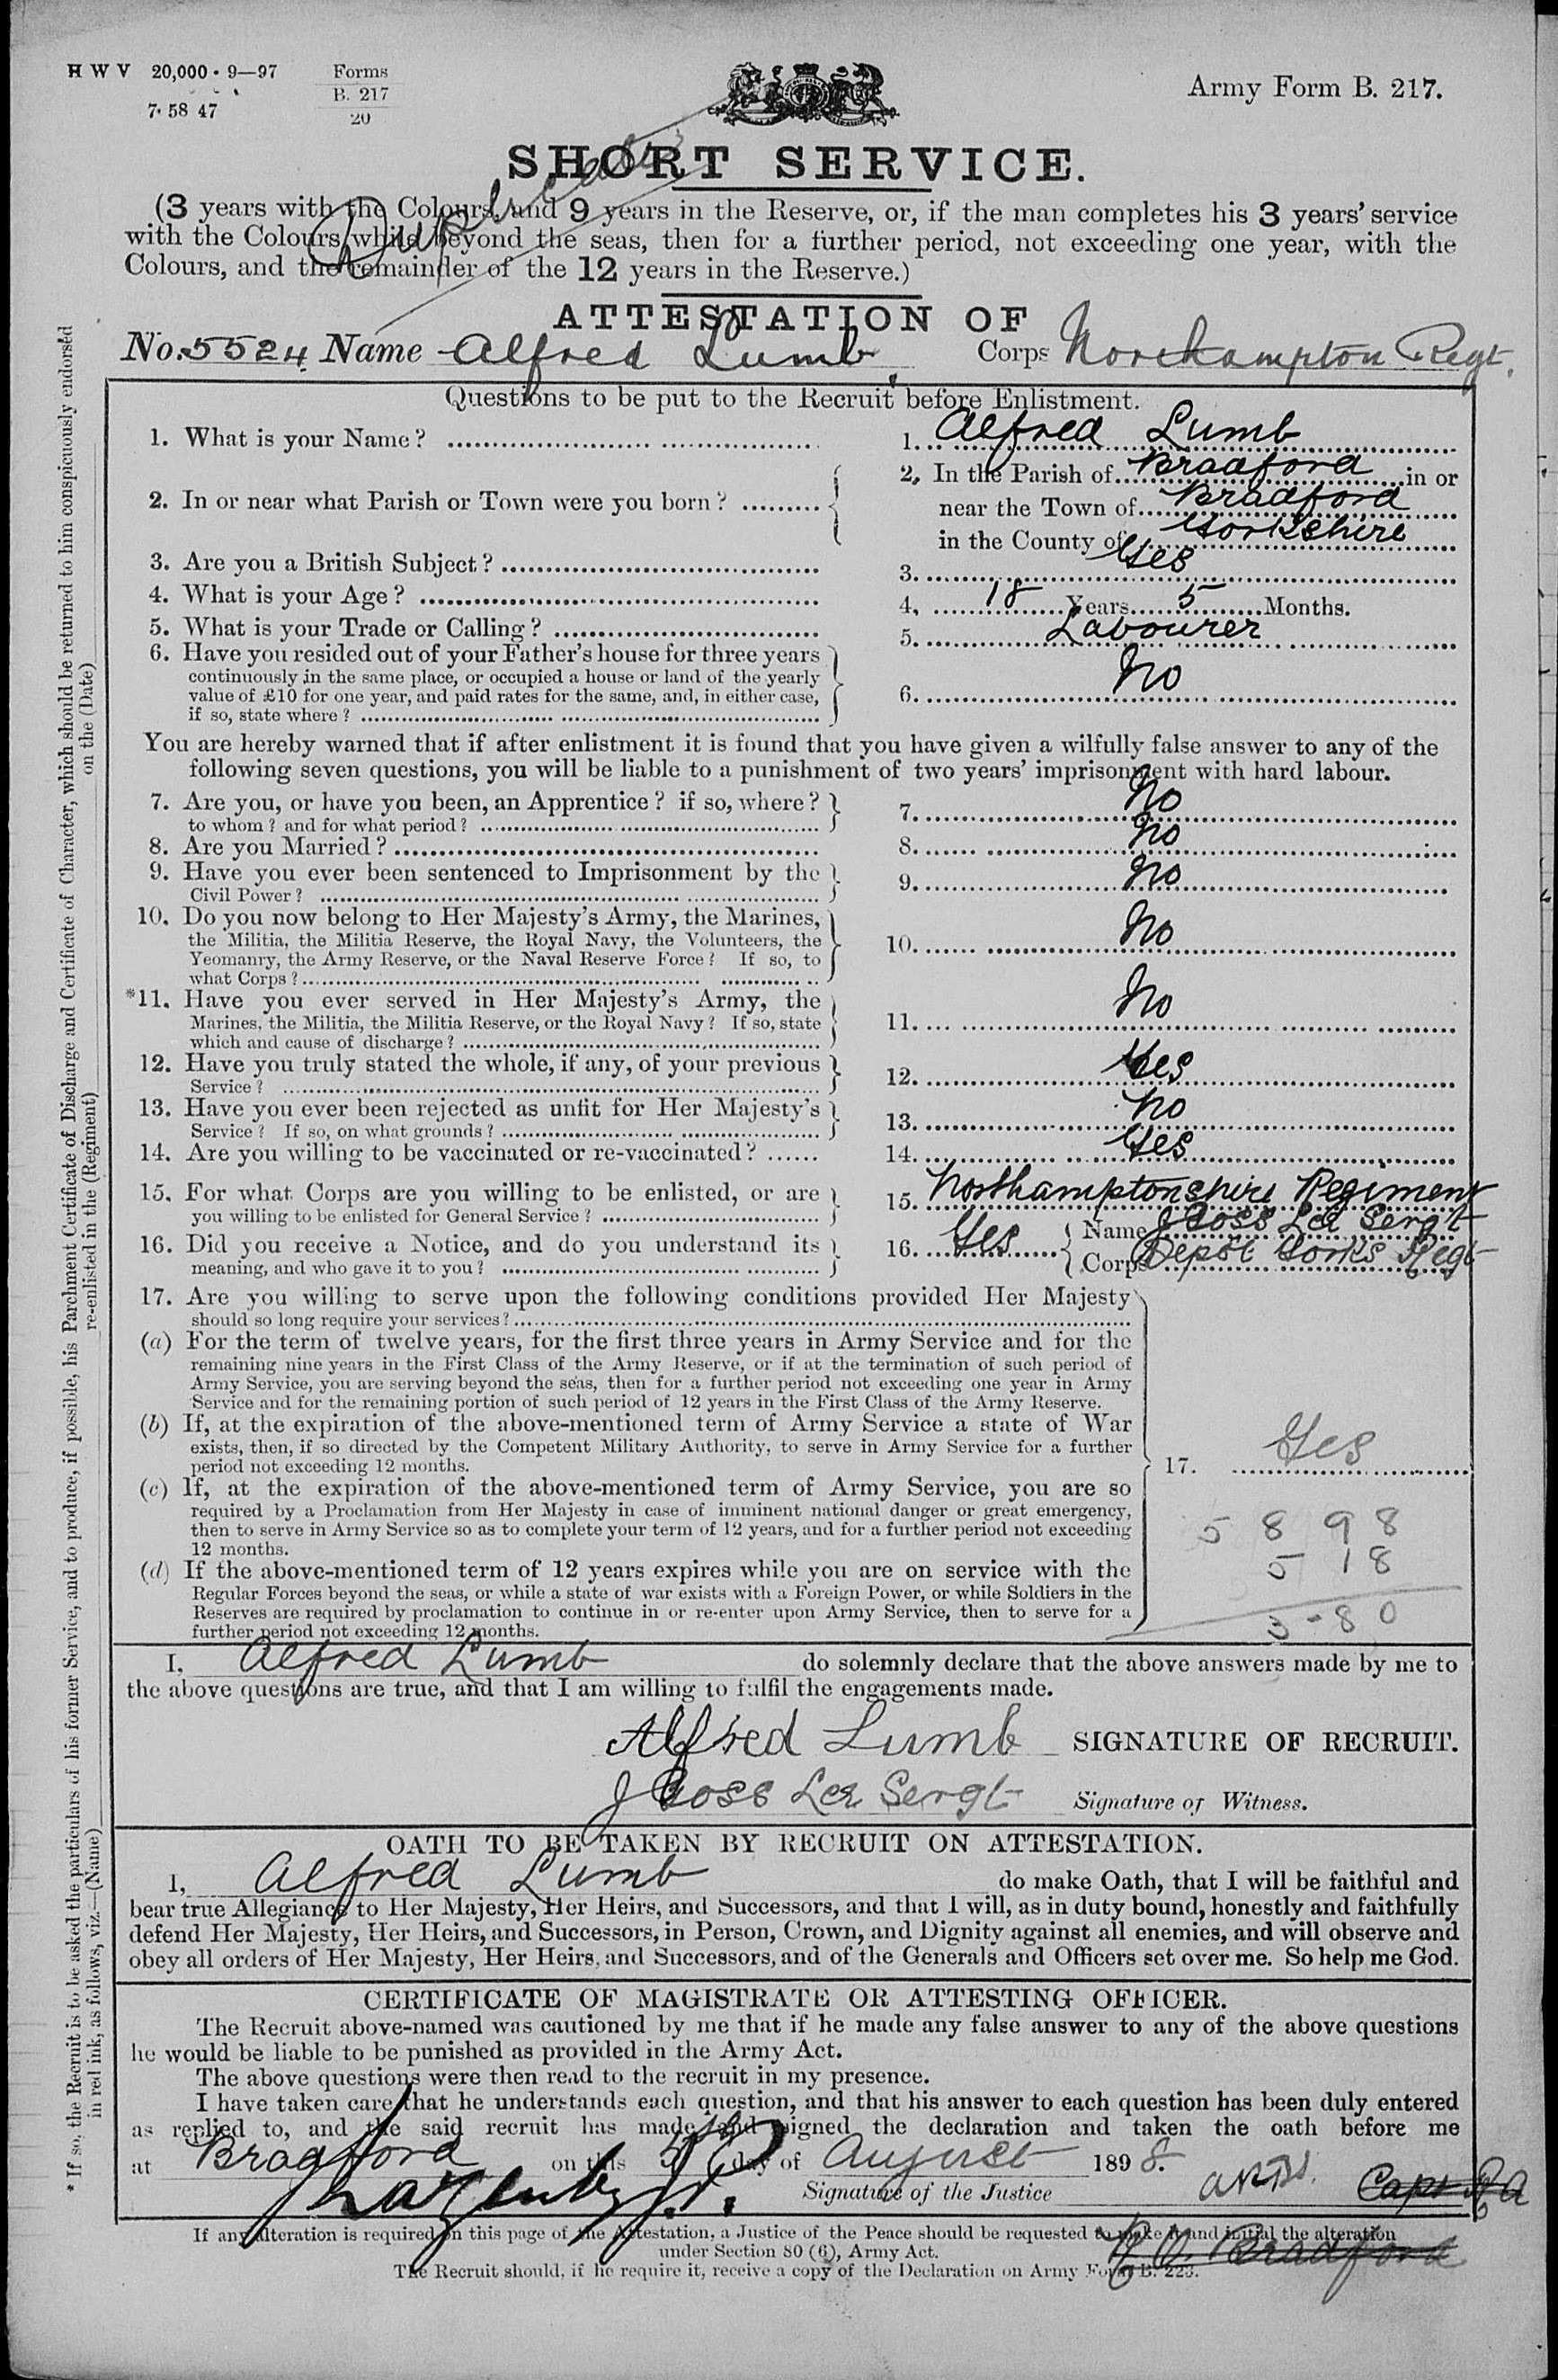 H W V 20,000 • 9—97 Forms
B. 217
7· 58 47 20
Army Form B. 217.
SHORT SERVICE.
Duplicate
(3 years with the Colours, and 9 years in the Reserve, or, if the man completes his 3 years' service
with the Colours while beyond the seas, then for a further period, not exceeding one year, with the
Colours, and the remainder of the 12 years in the Reserve.)
ATTESTATION OF
No. 5524 Name Alfred Lumb Corps Northampton Regt.
Questions to be put to the Recruit before Enlistment.
1. What is your Name? 1. Alfred Lumb
2. In or near what Parish or Town were you born? 2. In the Parish of Bradford in or
near the Town of Bradford
in the County of Yorkshire
3. Are you a British Subject? 3. Yes
4. What is your Age? 4, 18 Years 5 Months.
5. What is your Trade or Calling? 5. Labourer
6. Have you resided out of your Father's house for three years
continuously in the same place, or occupied a house or land of the yearly
value of £10 for one year, and paid rates for the same, and, in either case,
if so, state where? 6. No
You are hereby warned that if after enlistment it is found that you have given a wilfully false answer to any of the
following seven questions, you will be liable to a punishment of two years' imprisonment with hard labour.
7. Are you, or have you been, an Apprentice? if so, where?
to whom? and for what period? 7. No
8. Are you Married? 8. No
9. Have you ever been sentenced to Imprisonment by the
Civil Power? 9. No
10. Do you now belong to Her Majesty's Army, the Marines,
the Militia, the Militia Reserve, the Royal Navy, the Volunteers, the
Yeomanry, the Army Reserve, or the Naval Reserve Force? If so, to
what Corps? 10. No
*11. Have you ever served in Her Majesty's Army, the
Marines, the Militia, the Militia Reserve, or the Royal Navy? If so, state
which and cause of discharge? 11. No
12. Have you truly stated the whole, if any, of your previous
Service? 12. Yes
13. Have you ever been rejected as unfit for Her Majesty's
Service? If so, on what grounds? 13. No
14. Are you willing to be vaccinated or re-vaccinated? 14. Yes
15. For what Corps are you willing to be enlisted, or are
you willing to be enlisted for General Service? 15. Northamptonshire Regiment
16. Did you receive a Notice, and do you understand its
meaning, and who gave it to you? 16. Yes Name J Goss Lce Sergt
Corps Depôt Yorks Regt
17. Are you willing to serve upon the following conditions provided Her Majesty
should so long require your services?
(a) For the term of twelve years, for the first three years in Army Service and for the
remaining nine years in the First Class of the Army Reserve, or if at the termination of such period of
Army Service, you are serving beyond the seas, then for a further period not exceeding one year in Army
Service and for the remaining portion of such period of 12 years in the First Class of the Army Reserve.
(b) If, at the expiration of the above-mentioned term of Army Service a state of War
exists, then, if so directed by the Competent Military Authority, to serve in Army Service for a further
period not exceeding 12 months.
17. Yes
(c) If, at the expiration of the above-mentioned term of Army Service, you are so
required by a Proclamation from Her Majesty in case of imminent national danger or great emergency,
then to serve in Army Service so as to complete your term of 12 years, and for a further period not exceeding
12 months.
(d) If the above-mentioned term of 12 years expires while you are on service with the
Regular Forces beyond the seas, or while a state of war exists with a Foreign Power, or while Soldiers in the
Reserves are required by proclamation to continue in or re-enter upon Army Service, then to serve for a
further period not exceeding 12 months.
5 8 98
5 18
3-80
I, Alfred Lumb do solemnly declare that the above answers made by me to
the above questions are true, and that I am willing to fulfil the engagements made.
Alfred Lumb SIGNATURE OF RECRUIT.
J Goss Lce Sergt Signature of Witness.
OATH TO BE TAKEN BY RECRUIT ON ATTESTATION.
I, Alfred Lumb do make Oath, that I will be faithful and
bear true Allegiance to Her Majesty, Her Heirs, and Successors, and that I will, as in duty bound, honestly and faithfully
defend Her Majesty, Her Heirs, and Successors, in Person, Crown, and Dignity against all enemies, and will observe and
obey all orders of Her Majesty, Her Heirs, and Successors, and of the Generals and Officers set over me. So help me God.
CERTIFICATE OF MAGISTRATE OR ATTESTING OFFICER.
The Recruit above-named was cautioned by me that if he made any false answer to any of the above questions
he would be liable to be punished as provided in the Army Act.
The above questions were then read to the recruit in my presence.
I have taken care that he understands each question, and that his answer to each question has been duly entered
as replied to, and the said recruit has made and signed the declaration and taken the oath before me
at Bradford on this 5th day of August 1898.
Signature of the Justice Capt RA
R O Bradford
If any alteration is required on this page of the Attestation, a Justice of the Peace should be requested to make it and initial the alteration
under Section 80 (6), Army Act.
The Recruit should, if he require it, receive a copy of the Declaration on Army Form B. 223.
* If so, the Recruit is to be asked the particulars of his former Service, and to produce, if possible, his Parchment Certificate of Discharge and Certificate of Character, which should be returned to him conspicuously endorsed
in red ink, as follows, viz.—(Name) re-enlisted in the (Regiment) on the (Date)